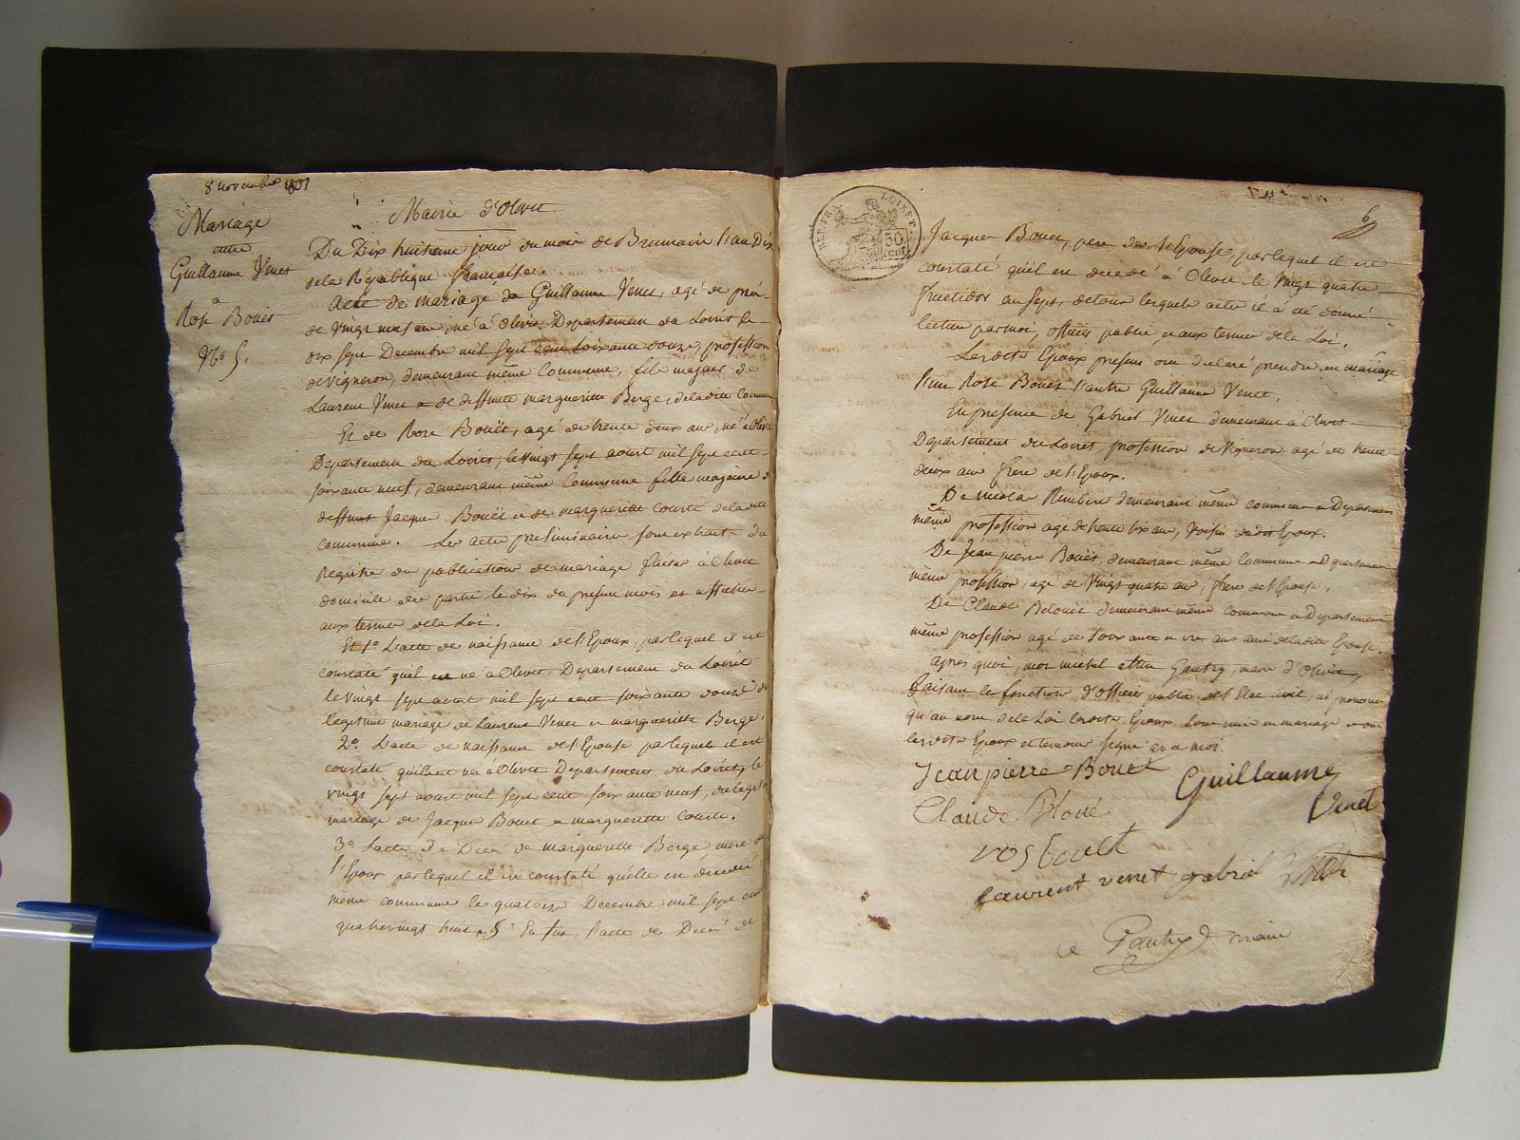 8 novembre 1801
Mariage
entre
Guillaume Venet
a
Rose Bouët
N.o 5.
Mairie d'Olivet
Du Dix huitieme jour du mois de Brumaire l'an Dix
de la République française.
Acte de mariage de Guillaume Venet, agé de prés
de Vingt neuf ans, né à Olivet Departement du Loiret le
dix sept Decembre mil sept cent soixante douze, profession
de vigneron, demeurant même Commune, fils majeur de
Laurent Venet et de deffunte margueritte Berge, de ladite Commune
Et de Rose Bouët, agé de trente deux ans, né à Olivet
Departement du Loiret, le vingt sept aoust mil sept cent
soixante neuf, demeurant même Commune fille majeure de
deffunt Jacque Bouët et de margueritte Courte de ladite
commune. Les actes preliminaires sont extraits du
Registre de publication de mariage faites à Olivet
domicile des partie le dix du present mois et affichée
aux termes de la Loi.
Et 1o L'acte de naissance de l'Epoux, par lequel il est
constaté quil est né à Olivet, Departement du Loiret
le vingt sept aoust mil sept cent soixante douze du
legitime mariage de Laurent Venet et margueritte Berge.
2o. L'acte de naissance de l'Epouse par lequel il est
constaté quil est né à Olivet Departement du Loiret, le
vingt sept aoust mil sept cent soixante neuf, du legit.
mariage de Jacque Bouet et margueritte Courte.
3o L'acte de Decé de margueritte Berge mere de
l'Epoux par lequel il est constaté qu'elle est décédée
même commune le quatorze Decembre mil sept cent
quatrevingt huit. Enfin, l'acte de Decé de
6
Jacque Bouet, pere de l'Epouse, par lequel il est
constaté qu'il est décédé à Olivet le vingt quatre
fructidor an sept, de tous lesquels actes il à été donné
lecture par moi, officier public, aux termes de la Loi.
Lesdits Epoux presens ont declaré prendre en mariage
l'un Rose Bouët l'autre Guillaume Venet.
En presence de Gabriel Venet demeurant à Olivet
Departement du Loiret, profession de Vigneron agé de trente
deux ans frere de l'Epoux.
De Nicolas Rimbert demeurant même commune et Departement
même profession agé de trente six ans, Voisin dudit Epoux.
De Jean pierre Bouët, demeurant même Commune et Departement
même profession, agé de Vingt quatre ans, frere de l'Epouse.
De Claude Beloüé demeurant même commune et Departement
même profession agé de soixante et un ans ami de ladite Epouse.
après quoi, moi michel Gautry, maire d'Olivet,
faisant les fonction d'officier public de l'Etat civil, ai prononcé
qu'au nom de la Loi lesdits Epoux sont unis en mariage et ont
lesdits Epoux et temoins signé avec moi.
Jean pierre Bouet
Guillaume
Venet
Claude Bloué
ros bouet
laurent venet gabriel
Gautry maire